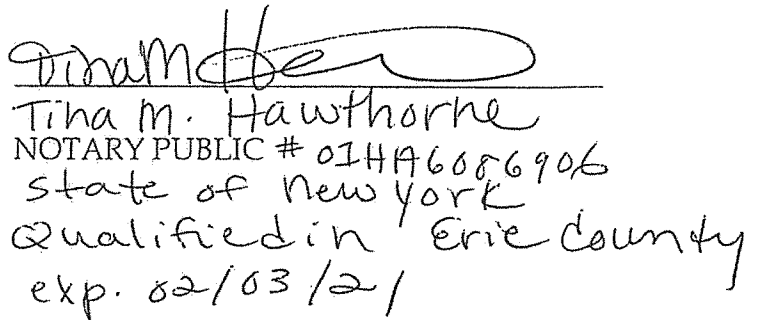 Tina M. Hawthorne
NOTARY PUBLIC # 01HA6086906
State of New York
Qualified in Erie County
exp. 02/03/21